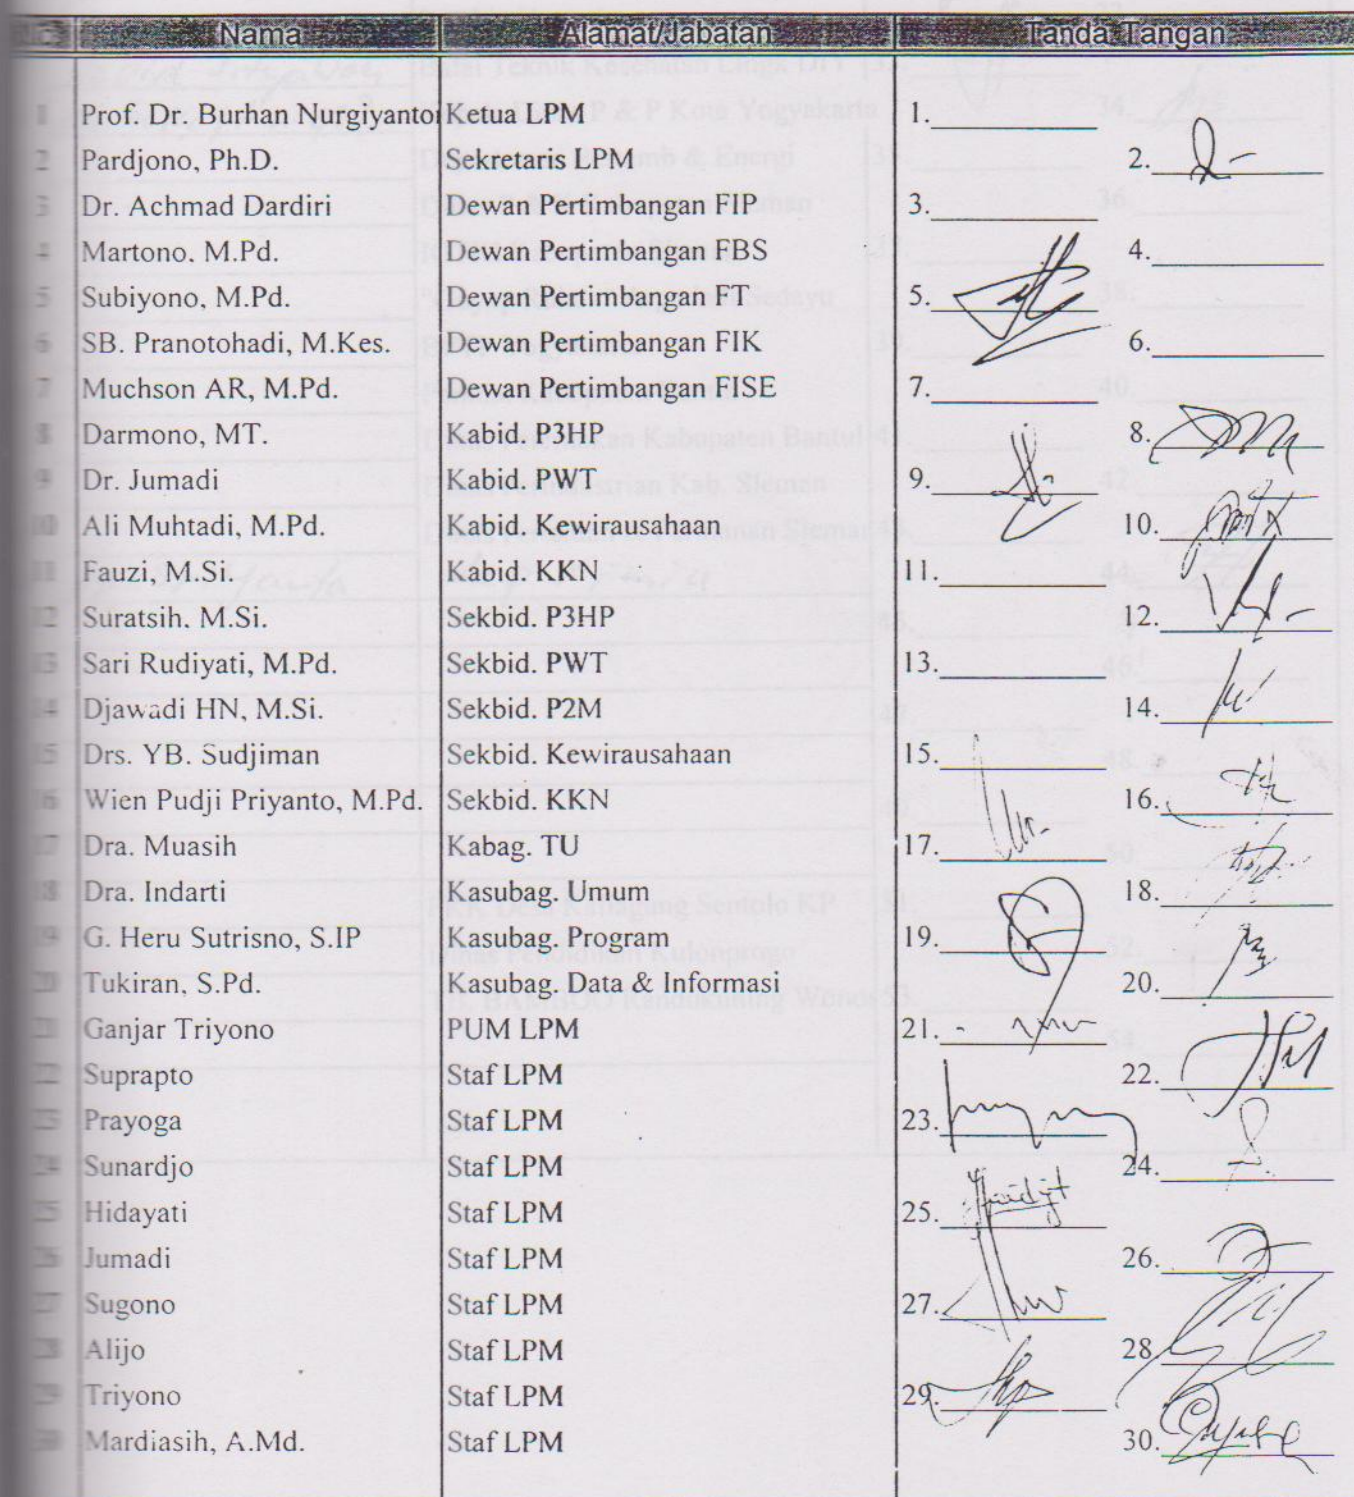 Nama Alamat/Jabatan Tanda Tangan
1 Prof. Dr. Burhan Nurgiyantoi Ketua LPM 1.
2 Pardjono, Ph.D. Sekretaris LPM 2.
3 Dr. Achmad Dardiri Dewan Pertimbangan FIP 3.
4 Martono. M.Pd. Dewan Pertimbangan FBS 4.
5 Subiyono, M.Pd. Dewan Pertimbangan FT 5.
6 SB. Pranotohadi, M.Kes. Dewan Pertimbangan FIK 6.
7 Muchson AR, M.Pd. Dewan Pertimbangan FISE 7.
8 Darmono, MT. Kabid. P3HP 8.
9 Dr. Jumadi Kabid. PWT 9.
10 Ali Muhtadi, M.Pd. Kabid. Kewirausahaan 10.
11 Fauzi, M.Si. Kabid. KKN 11.
12 Suratsih. M.Si. Sekbid. P3HP 12.
13 Sari Rudiyati, M.Pd. Sekbid. PWT 13.
14 Djawadi HN, M.Si. Sekbid. P2M 14.
15 Drs. YB. Sudjiman Sekbid. Kewirausahaan 15.
16 Wien Pudji Priyanto, M.Pd. Sekbid. KKN 16.
17 Dra. Muasih Kabag. TU 17.
18 Dra. Indarti Kasubag. Umum 18.
19 G. Heru Sutrisno, S.IP Kasubag. Program 19.
20 Tukiran, S.Pd. Kasubag. Data & Informasi 20.
21 Ganjar Triyono PUM LPM 21.
22 Suprapto Staf LPM 22.
23 Prayoga Staf LPM 23.
24 Sunardjo Staf LPM 24.
25 Hidayati Staf LPM 25.
26 Jumadi Staf LPM 26.
27 Sugono Staf LPM 27.
28 Alijo Staf LPM 28
29 Triyono Staf LPM 29.
30 Mardiasih, A.Md. Staf LPM 30.